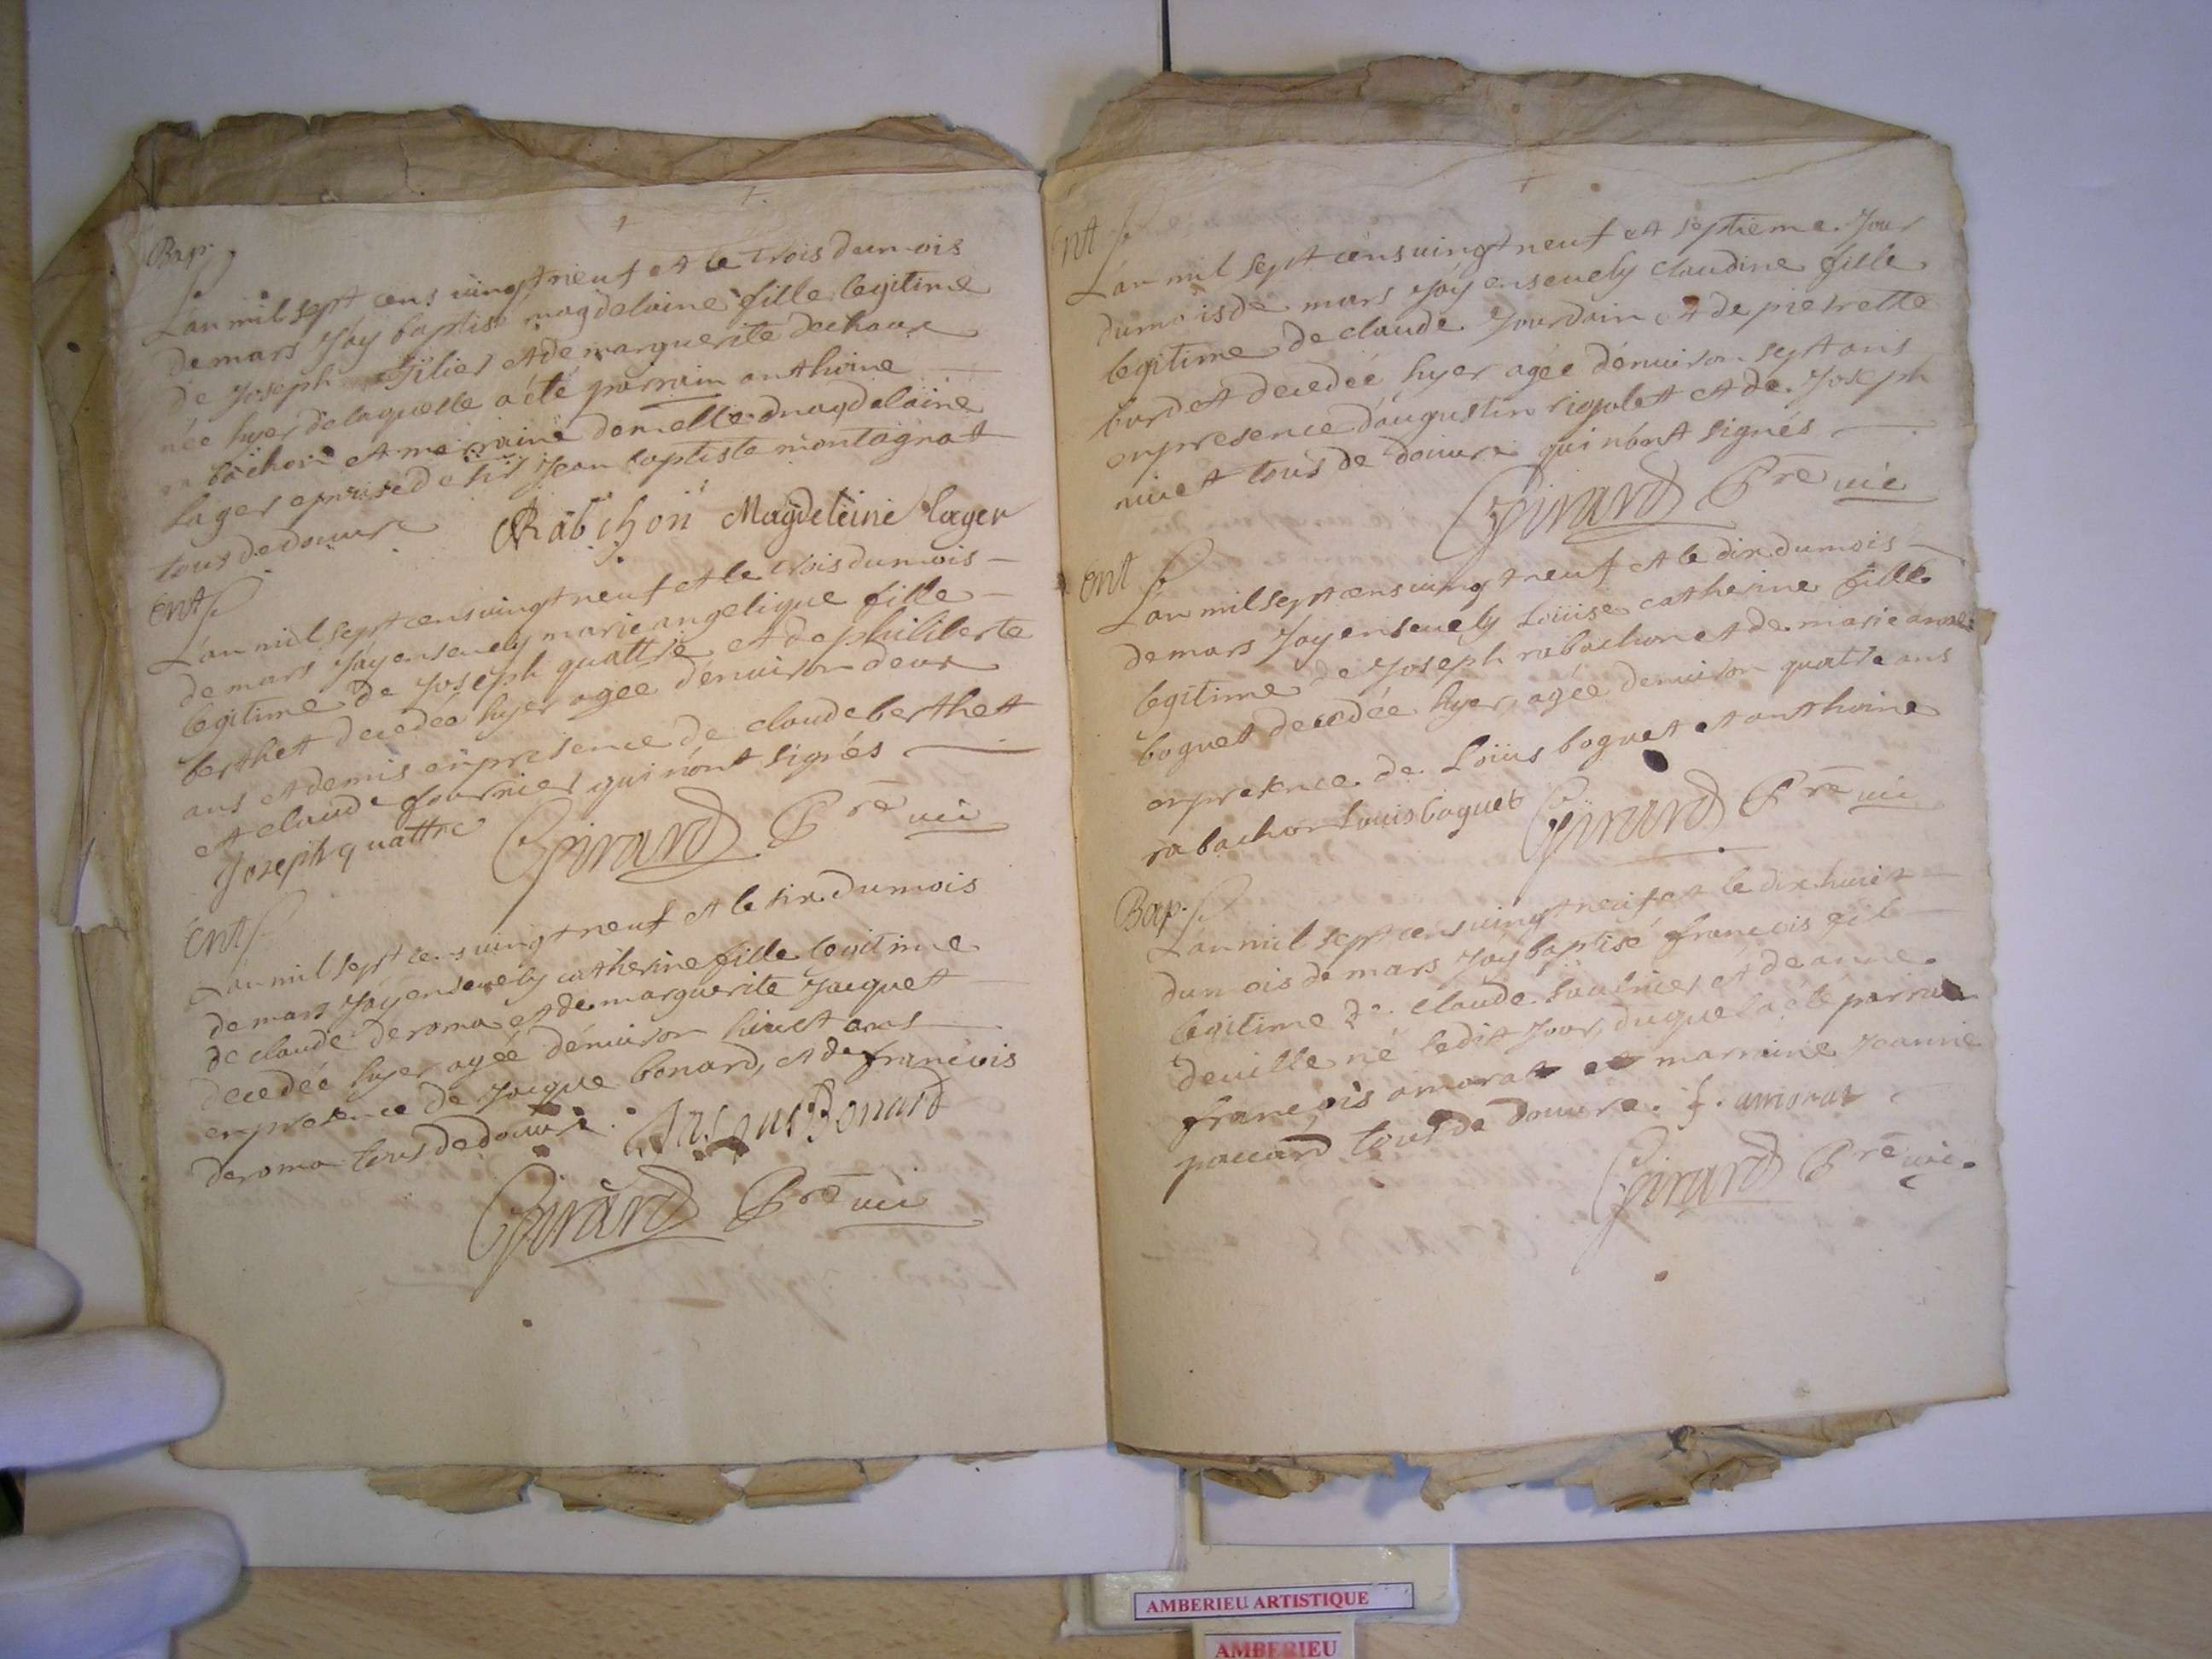 Bap.
L'an mil sept cens vingt neuf et le trois du mois
de mars j'ay baptisé magdelaine fille legitime
de Joseph et de marguerite dechaux
née hyer de laquelle a été parrain anthoine
ra bachon et marraine demelle magdelaine
lager epouse de sir Jean baptiste montagnat
tous de douvre
Räbchon Magdeleine lager
Ent
L'an mil sept cens vingt neuf et le trois du mois
de mars j'ay ensevely marie angelique fille
legitime de Joseph quattre et de philiberte
berthet decedée hyer agee d'enuiron deux
ans et demis en presence de claude berthet
et claude fournier qui n'ont signés
Joseph quattre Girard Pre vic
Ent
L'an mil sept cens vingt neuf et le six du mois
de mars j'ay ensevely catherine fille legitime
de claude deroma et de marguerite Jacquet
decedée hyer agée d'enuiron huict ans
en presence de Jacque bonard, et de francois
deroma tous de douvre. Jacque Bonard
Girard Pre vic
Ent
L'an mil sept cens vingt neuf et septieme Jour
du mois de mars j'ay ensevely claudine fille
legitime de claude Jourdain et de pierrette
bordet decedée hyer agée d'enuiron sept ans
en presence d'augustin rigolet et de Joseph
nivet tous de douvre qui n'ont signés
Girard Pre vic
Ent
L'an mil sept cens vingt neuf et le dix du mois
de mars j'ay ensevely Loüise catherine fille
legitime de Joseph rabachon et de marie anne
boguet decedée hyer, agée d'enuiron quatre ans
en presence de Loüis boguet et anthoine
rabachon Louis boguet Girard Pre vic
Bap.
L'an mil sept cens vingt neuf et le dix huict
du mois de mars j'ay baptisé francois fils
legitime de claude saulnier et de anne
deville né ledit Jour, duquel a été parrain
francois amorat et marraine Jeanne
pavard tous de douvre. f. amorat
Girard Pre vic.
AMBERIEU ARTISTIQUE
AMBERIEU